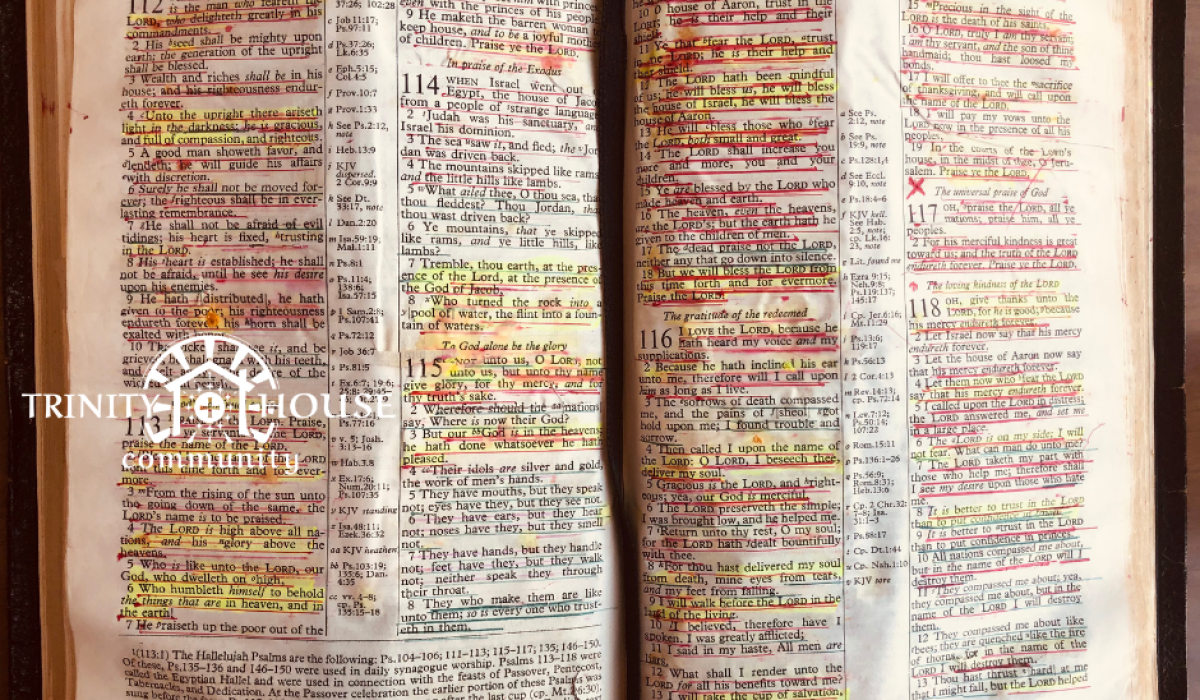 112 is the man who feareth the
LORD, who delighteth greatly in his
commandments.
2 His seed shall be mighty upon
earth; the generation of the upright
shall be blessed.
3 Wealth and riches shall be in his
house; and his righteousness endur-
eth forever.
4 Unto the upright there ariseth
light in the darkness; he is gracious,
and full of compassion, and righteous.
5 A good man showeth favor, and
lendeth; he will guide his affairs
with discretion.
6 Surely he shall not be moved for-
ever; the righteous shall be in ever-
lasting remembrance.
7 He shall not be afraid of evil
tidings; his heart is fixed, trusting
in the LORD.
8 His heart is established; he shall
not be afraid, until he see his desire
upon his enemies.
9 He hath distributed, he hath
given to the poor; his righteousness
endureth forever; his horn shall be
exalted with
10 The see it, and be
grieved; with his teeth,
and of the
TRINITY HOUSE
community
113 Praise,
praise the name of the LORD.
from this time forth and for ever-
more.
3 From the rising of the sun unto
the going down of the same, the
LORD's name is to be praised.
4 The LORD is high above all na-
tions, and his glory above the
heavens.
5 Who is like unto the LORD, our
God, who dwelleth on high,
6 Who humbleth himself to behold
the things that are in heaven, and in
the earth!
7 He raiseth up the poor out of the
37:26; 102:28
c Job 11:17;
Ps.97:11
d Ps.37:26;
Lk.6:35
e Eph.5:15;
Col.4:5
f Prov.10:7
g Prov.1:33
h See Ps.2:12,
note
i Heb.13:9
j KJV
dispersed.
2 Cor.9:9
k See Dt.
33:17, note
l Dan.2:20
m Isa.59:19;
Mal.1:11
n Ps.8:1
o Ps.11:4;
138:6;
Isa.57:15
p 1 Sam.2:8;
Ps.107:41
q Ps.72:12
r Job 36:7
s Ps.81:5
t Ex.6:7; 19:6;
Ps.77:16
v vv. 5; Josh.
3:13-16
w Hab.3:8
x Ex.17:6;
Num.20:11;
Ps.107:35
y KJV standing
z Isa.48:11;
Ezek.36:32
aa KJV heathen
bb Ps.103:19;
135:6; Dan.
4:35
cc vv. 4-8;
cp. Ps.
135:15-18
even with the princes of his people.
9 He maketh the barren woman
keep house, and to be a joyful mother
of children. Praise ye the LORD.
In praise of the Exodus
114 WHEN Israel went out
Egypt, the house of Jacob
from a people of strange language
2 Judah was his sanctuary, and
Israel his dominion.
3 The sea saw it, and fled; the Jor-
dan was driven back.
4 The mountains skipped like rams
and the little hills like lambs.
5 What ailed thee, O thou sea, that
thou fleddest? Thou Jordan, that
thou wast driven back?
6 Ye mountains, that ye skipped
like rams, and ye little hills, like
lambs?
7 Tremble, thou earth, at the pres-
ence of the Lord, at the presence of
the God of Jacob,
8 Who turned the rock into a
pool of water, the flint into a foun-
tain of waters.
To God alone be the glory
115 NOT unto us, O LORD, not
unto us, but unto thy name
give glory, for thy mercy, and for
thy truth's sake.
2 Wherefore should the nations
say, Where is now their God?
3 But our God is in the heavens;
he hath done whatsoever he hath
pleased.
4 Their idols are silver and gold,
the work of men's hands.
5 They have mouths, but they speak
not; eyes have they, but they see not.
6 They have ears, but they hear
not; noses have they, but they smell
not.
7 They have hands, but they handle
not; feet have they, but they walk
not; neither speak they through
their throat.
8 They who make them are like
unto them; so is every one who trust-
eth in them.
1(113:1) The Hallelujah Psalms are the following: Ps.104-106; 111-113; 115-117; 135; 146-150.
Of these, Ps.135-136 and 146-150 were used in daily synagogue worship. Psalms 113-118 were
called the Egyptian Hallel and were used in connection with the feasts of Passover, Pentecost,
Tabernacles, and Dedication. At the Passover celebration the earlier portion of these Psalms was
sung before the after the last cup (cp. Mt.26:30).
10 O house of Aaron, trust in the
LORD; he is their help and their
shield.
11 Ye that fear the LORD, trust
in the LORD; he is their help and
their shield.
12 The LORD hath been mindful
of us; he will bless us, he will bless
the house of Israel, he will bless the
house of Aaron.
13 He will bless those who fear
the LORD, both small and great.
14 The LORD shall increase you
more and more, you and your
children.
15 Ye are blessed by the LORD who
made heaven and earth.
16 The heaven, even the heavens,
are the LORD's; but the earth hath he
given to the children of men.
17 The dead praise not the LORD,
neither any that go down into silence.
18 But we will bless the LORD from
this time forth and for evermore.
Praise the LORD!
The gratitude of the redeemed
116 I LOVE the LORD, because he
hath heard my voice and my
supplications.
2 Because he hath inclined his ear
unto me, therefore will I call upon
him as long as I live.
3 The sorrows of death compassed
me, and the pains of sheol got
hold upon me; I found trouble and
sorrow.
4 Then called I upon the name of
the LORD: O LORD, I beseech thee,
deliver my soul.
5 Gracious is the LORD, and right-
eous; yea, our God is merciful.
6 The LORD preserveth the simple;
I was brought low, and he helped me.
7 Return unto thy rest, O my soul;
for the LORD hath dealt bountifully
with thee.
8 For thou hast delivered my soul
from death, mine eyes from tears,
and my feet from falling.
9 I will walk before the LORD in the
land of the living.
10 I believed, therefore have I
spoken. I was greatly afflicted;
11 I said in my haste, All men are
liars.
12 What shall I render unto the
LORD for all his benefits toward me?
13 I will take the cup of salvation,
a See Ps.
2:12, note
b See Ps.
19:9, note
c Ps.128:1,4
d See Eccl.
9:10, note
e Ps.18:4-6
f KJV hell.
See Hab.
2:5, note;
cp. Lk.16:
23, note
g Lit. found me
h Ezra 9:15;
Neh.9:8;
Ps.119:137;
145:17
i Cp. Jer.6:16;
Mt.11:29
j Ps.13:6;
119:17
k Ps.56:13
l 2 Cor.4:13
m Rev.14:13;
cp. Ps.72:14
n Lev.7:12;
Ps.50:14;
107:22
o Rom.15:11
p Ps.136:1-26
q Ps.56:9;
Rom.8:31;
Heb.13:6
r Cp. 2 Chr.32:
7-8; Isa.
31:1-3
s Ps.88:17
t Cp. Dt.1:44
u Cp. Nah.1:10
v KJV sore
15 Precious in the sight of the
LORD is the death of his saints.
16 O LORD, truly I am thy servant;
I am thy servant, and the son of thine
handmaid; thou hast loosed my
bonds.
17 I will offer to thee the sacrifice
of thanksgiving, and will call upon
the name of the LORD.
18 I will pay my vows unto the
LORD now in the presence of all his
peoples,
19 In the courts of the LORD's
house, in the midst of thee, O Jeru-
salem. Praise ye the LORD.
The universal praise of God
117 OH, praise the LORD, all ye
nations; praise him, all ye
peoples.
2 For his merciful kindness is great
toward us; and the truth of the LORD
endureth forever. Praise ye the LORD.
The loving kindness of the LORD
118 OH, give thanks unto the
LORD, for he is good; because
his mercy endureth forever.
2 Let Israel now say that his mercy
endureth forever.
3 Let the house of Aaron now say
that his mercy endureth forever.
4 Let them now who fear the LORD
say that his mercy endureth forever.
5 I called upon the LORD in distress;
the LORD answered me, and set me
in a large place.
6 The LORD is on my side; I will
not fear. What can man do unto me?
7 The LORD taketh my part with
those who help me; therefore shall
I see my desire upon those who hate
me.
8 It is better to trust in the LORD
than to put confidence in man.
9 It is better to trust in the LORD
than to put confidence in princes.
10 All nations compassed me about,
but in the name of the LORD will I
destroy them.
11 They compassed me about; yea,
they compassed me about, but in the
name of the LORD I will destroy
them.
12 They compassed me about like
bees; they are quenched like the fire
of thorns, for in the name of the
LORD I will destroy them.
13 Thou hast thrust hard at me
that I might fall, but the LORD helped